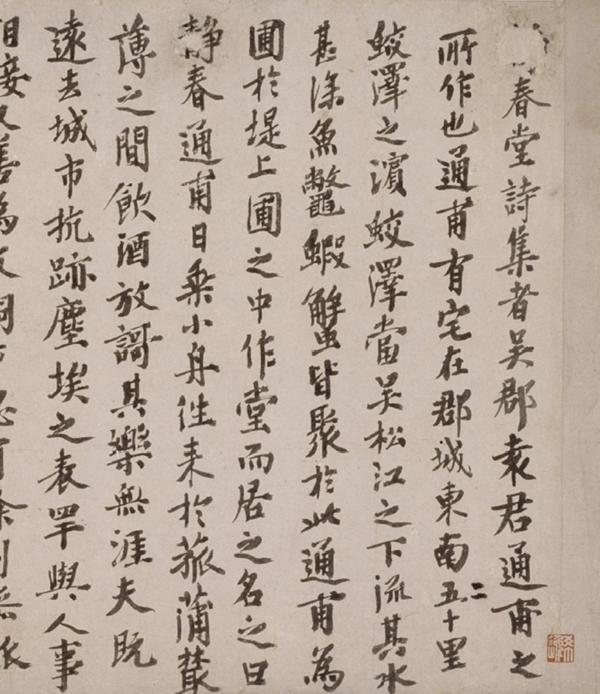 春堂詩集者吳郡袁君通甫之
所作也通甫有宅在郡城東南五十里
蛟澤之濱蛟澤當吳松江之下流其水
甚深魚鼈蝦蟹皆聚於此通甫為
圃於堤上圃之中作堂而居之名之曰
靜春通甫日乘小舟往来於菰蒲藂
薄之間飲酒放謌其樂無涯夫既
遠去城市抗跡塵埃之表罕與人事
相接又善為文詞